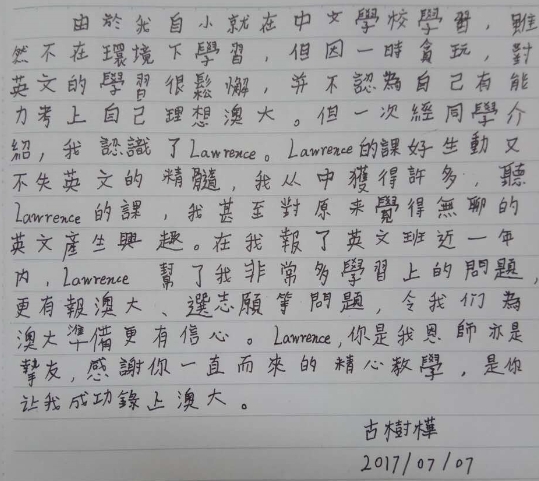 由於我自小就在中文學校學習，雖
然不在環境下學習，但因一時貪玩，對
英文的學習很鬆懈，并不認為自己有能
力考上自己理想澳大。但一次經同學介
紹，我認識了Lawrence。Lawrence的課好生動又
不失英文的精髓，我从中獲得許多，聽
Lawrence的課，我甚至對原來覺得無聊的
英文產生興趣。在我報了英文班近一年
內，Lawrence 幫了我非常多學習上的問題，
更有報澳大、選志願等問題，令我们為
澳大準備更有信心。Lawrence，你是我恩師亦是
摯友，感謝你一直而來的精心教學，是你
让我成功錄上澳大。
古樹樺
2017/07/07